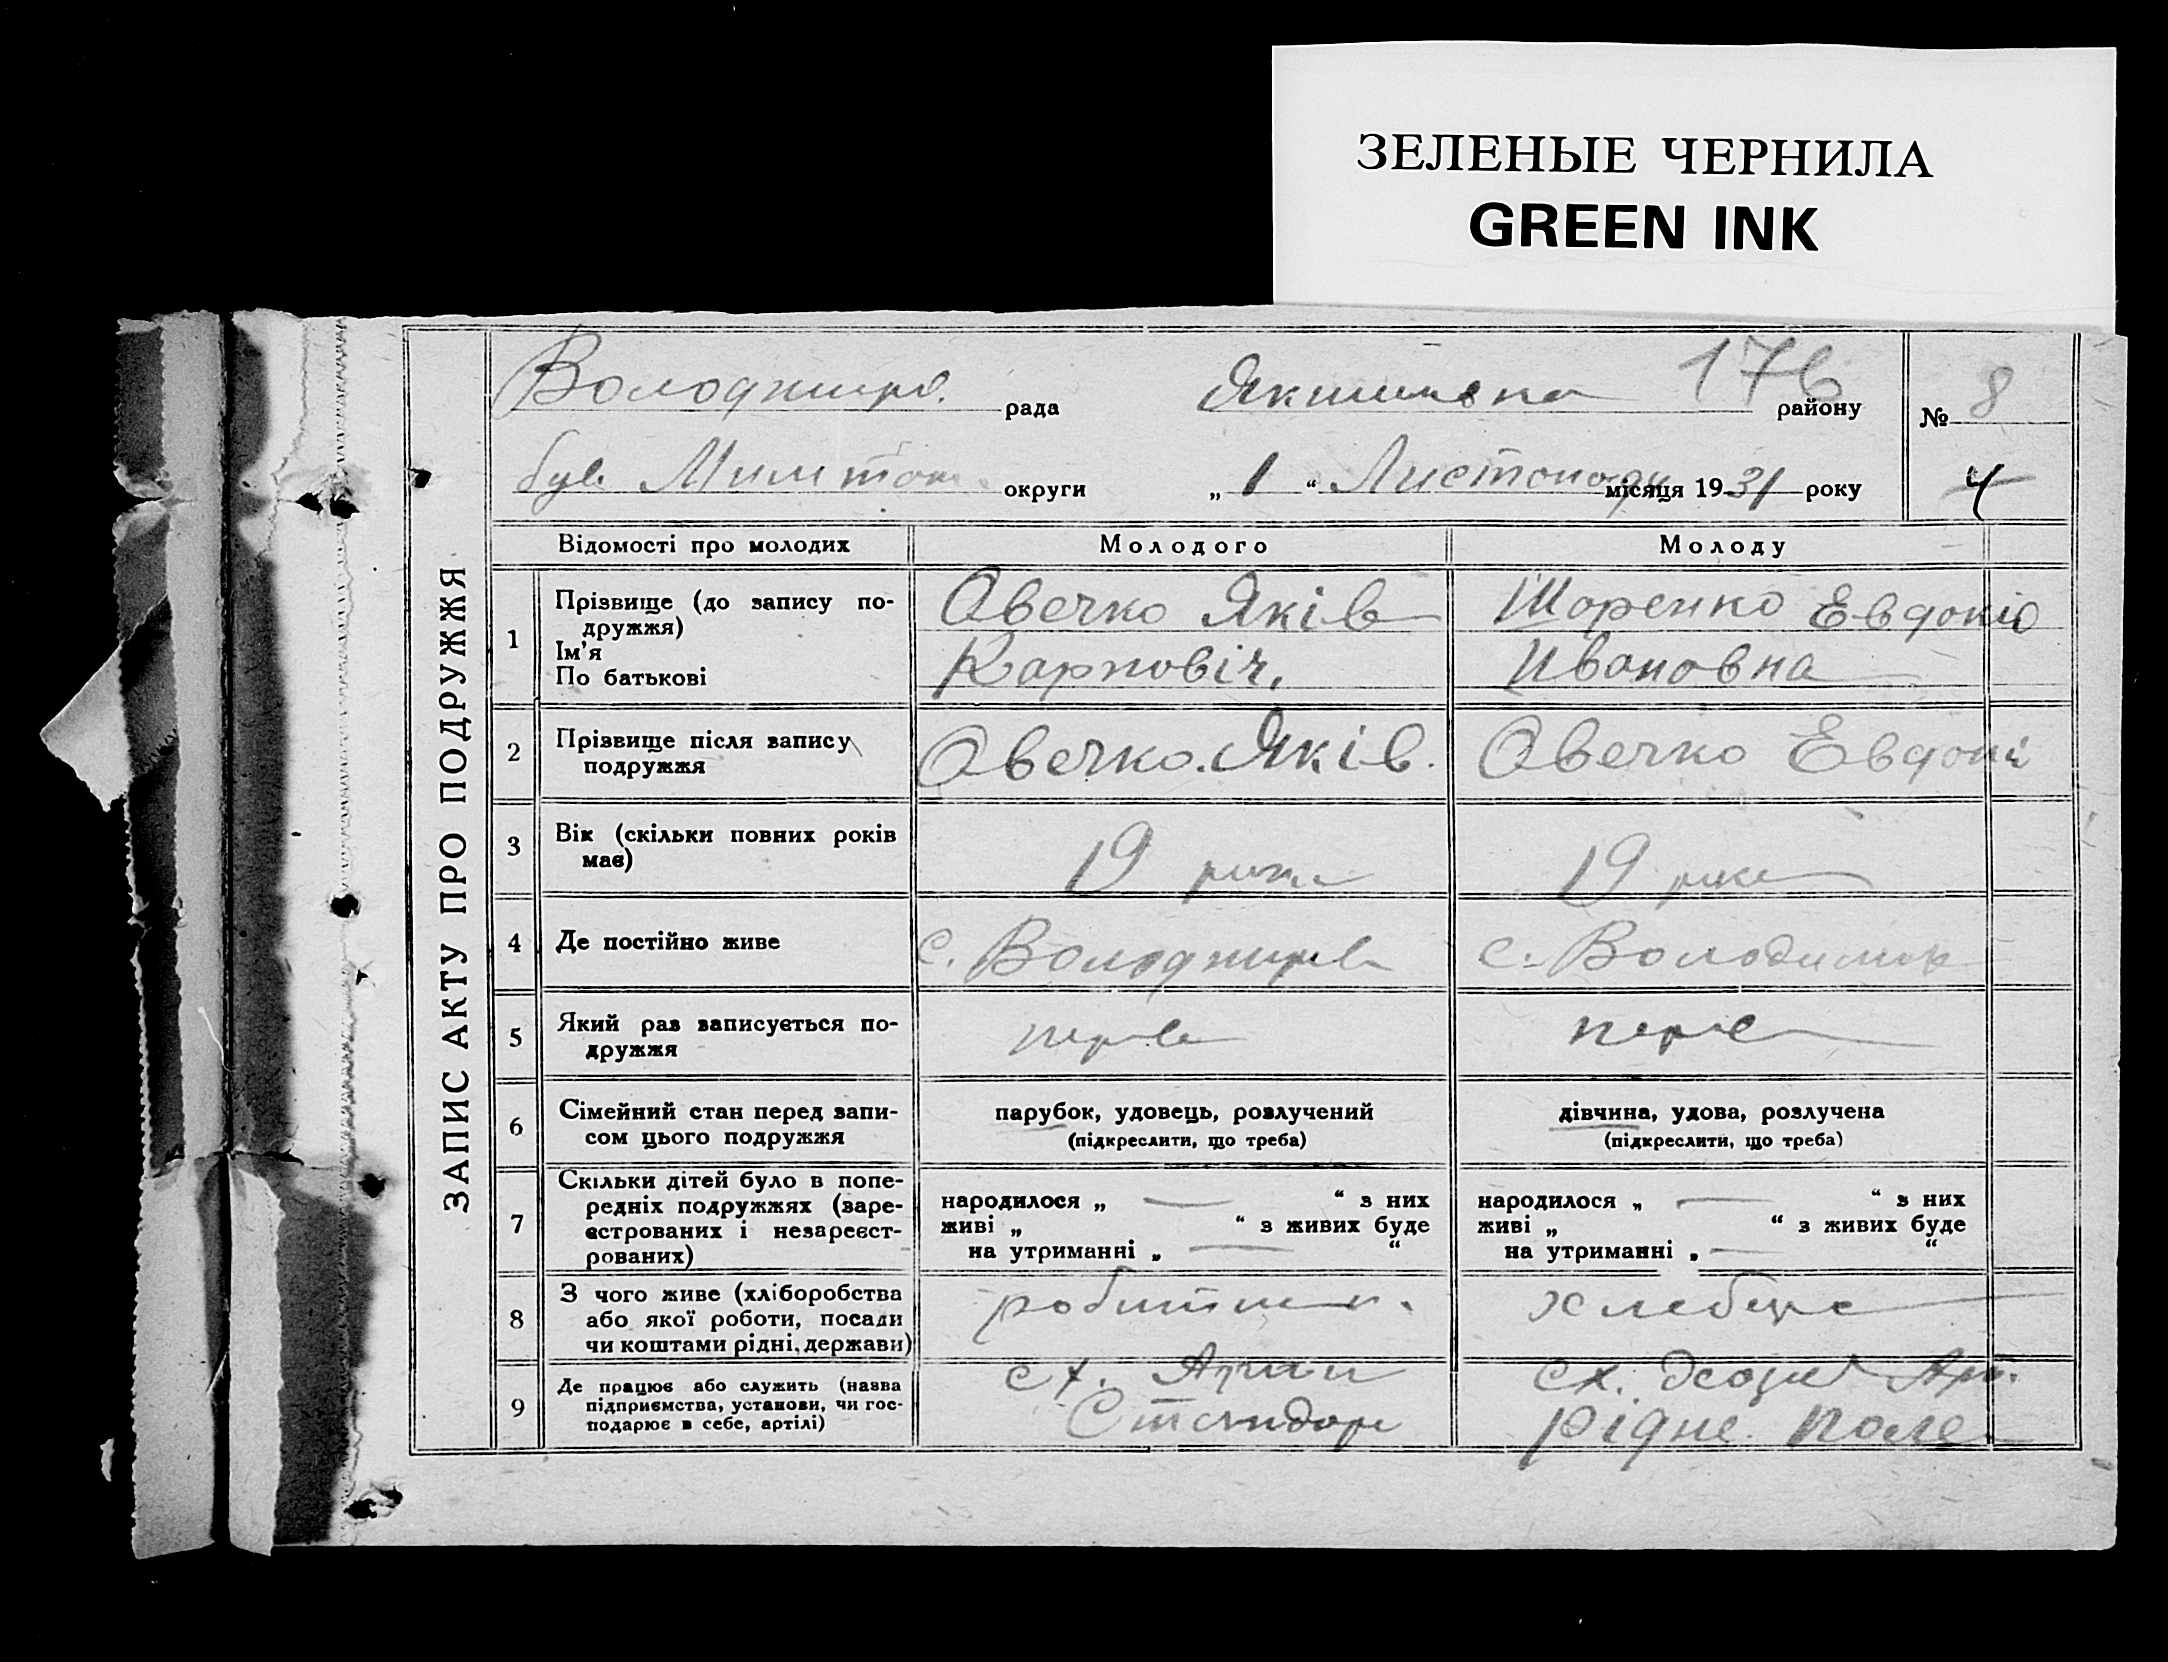 ЗЕЛЕНЫЕ ЧЕРНИЛА
GREEN INK
ЗАПИС АКТУ ПРО ПОДРУЖЖЯ
176
рада
району
№ 8
був.
округи
„ 1 “ Листопаду місяця 1931 року
4
Відомості про молодих
Молодого
Молоду
1
Прізвище (до запису по-
дружжя)
Ім'я
По батькові
Овечко Яків
Карповіч,
Шоренко Евдокіо
Ивановна
2
Прізвище після запису
подружжя
Овечко. Яків.
Овечко Евдокі
3
Вік (скільки повних років
має)
19
19
4
Де постійно живе
с.
с.
5
Який раз записується по-
дружжя
6
Сімейний стан перед запи-
сом цього подружжя
парубок, удовець, розлучений
(підкреслити, що треба)
дівчина, удова, розлучена
(підкреслити, що треба)
7
Скільки дітей було в попе-
редніх подружжях (заре-
єстрованих і незареєст-
рованих)
народилося „ — “ з них
живі „ “ з живих буде
на утриманні „ — “
народилося „ — “ з них
живі „ “ з живих буде
на утриманні „ — “
8
З чого живе (хліборобства
або якої роботи, посади
чи коштами рідні, держави)
9
Де працює або служить (назва
підприємства, установи, чи гос-
подарює в себе, артілі)
Рідне Поле